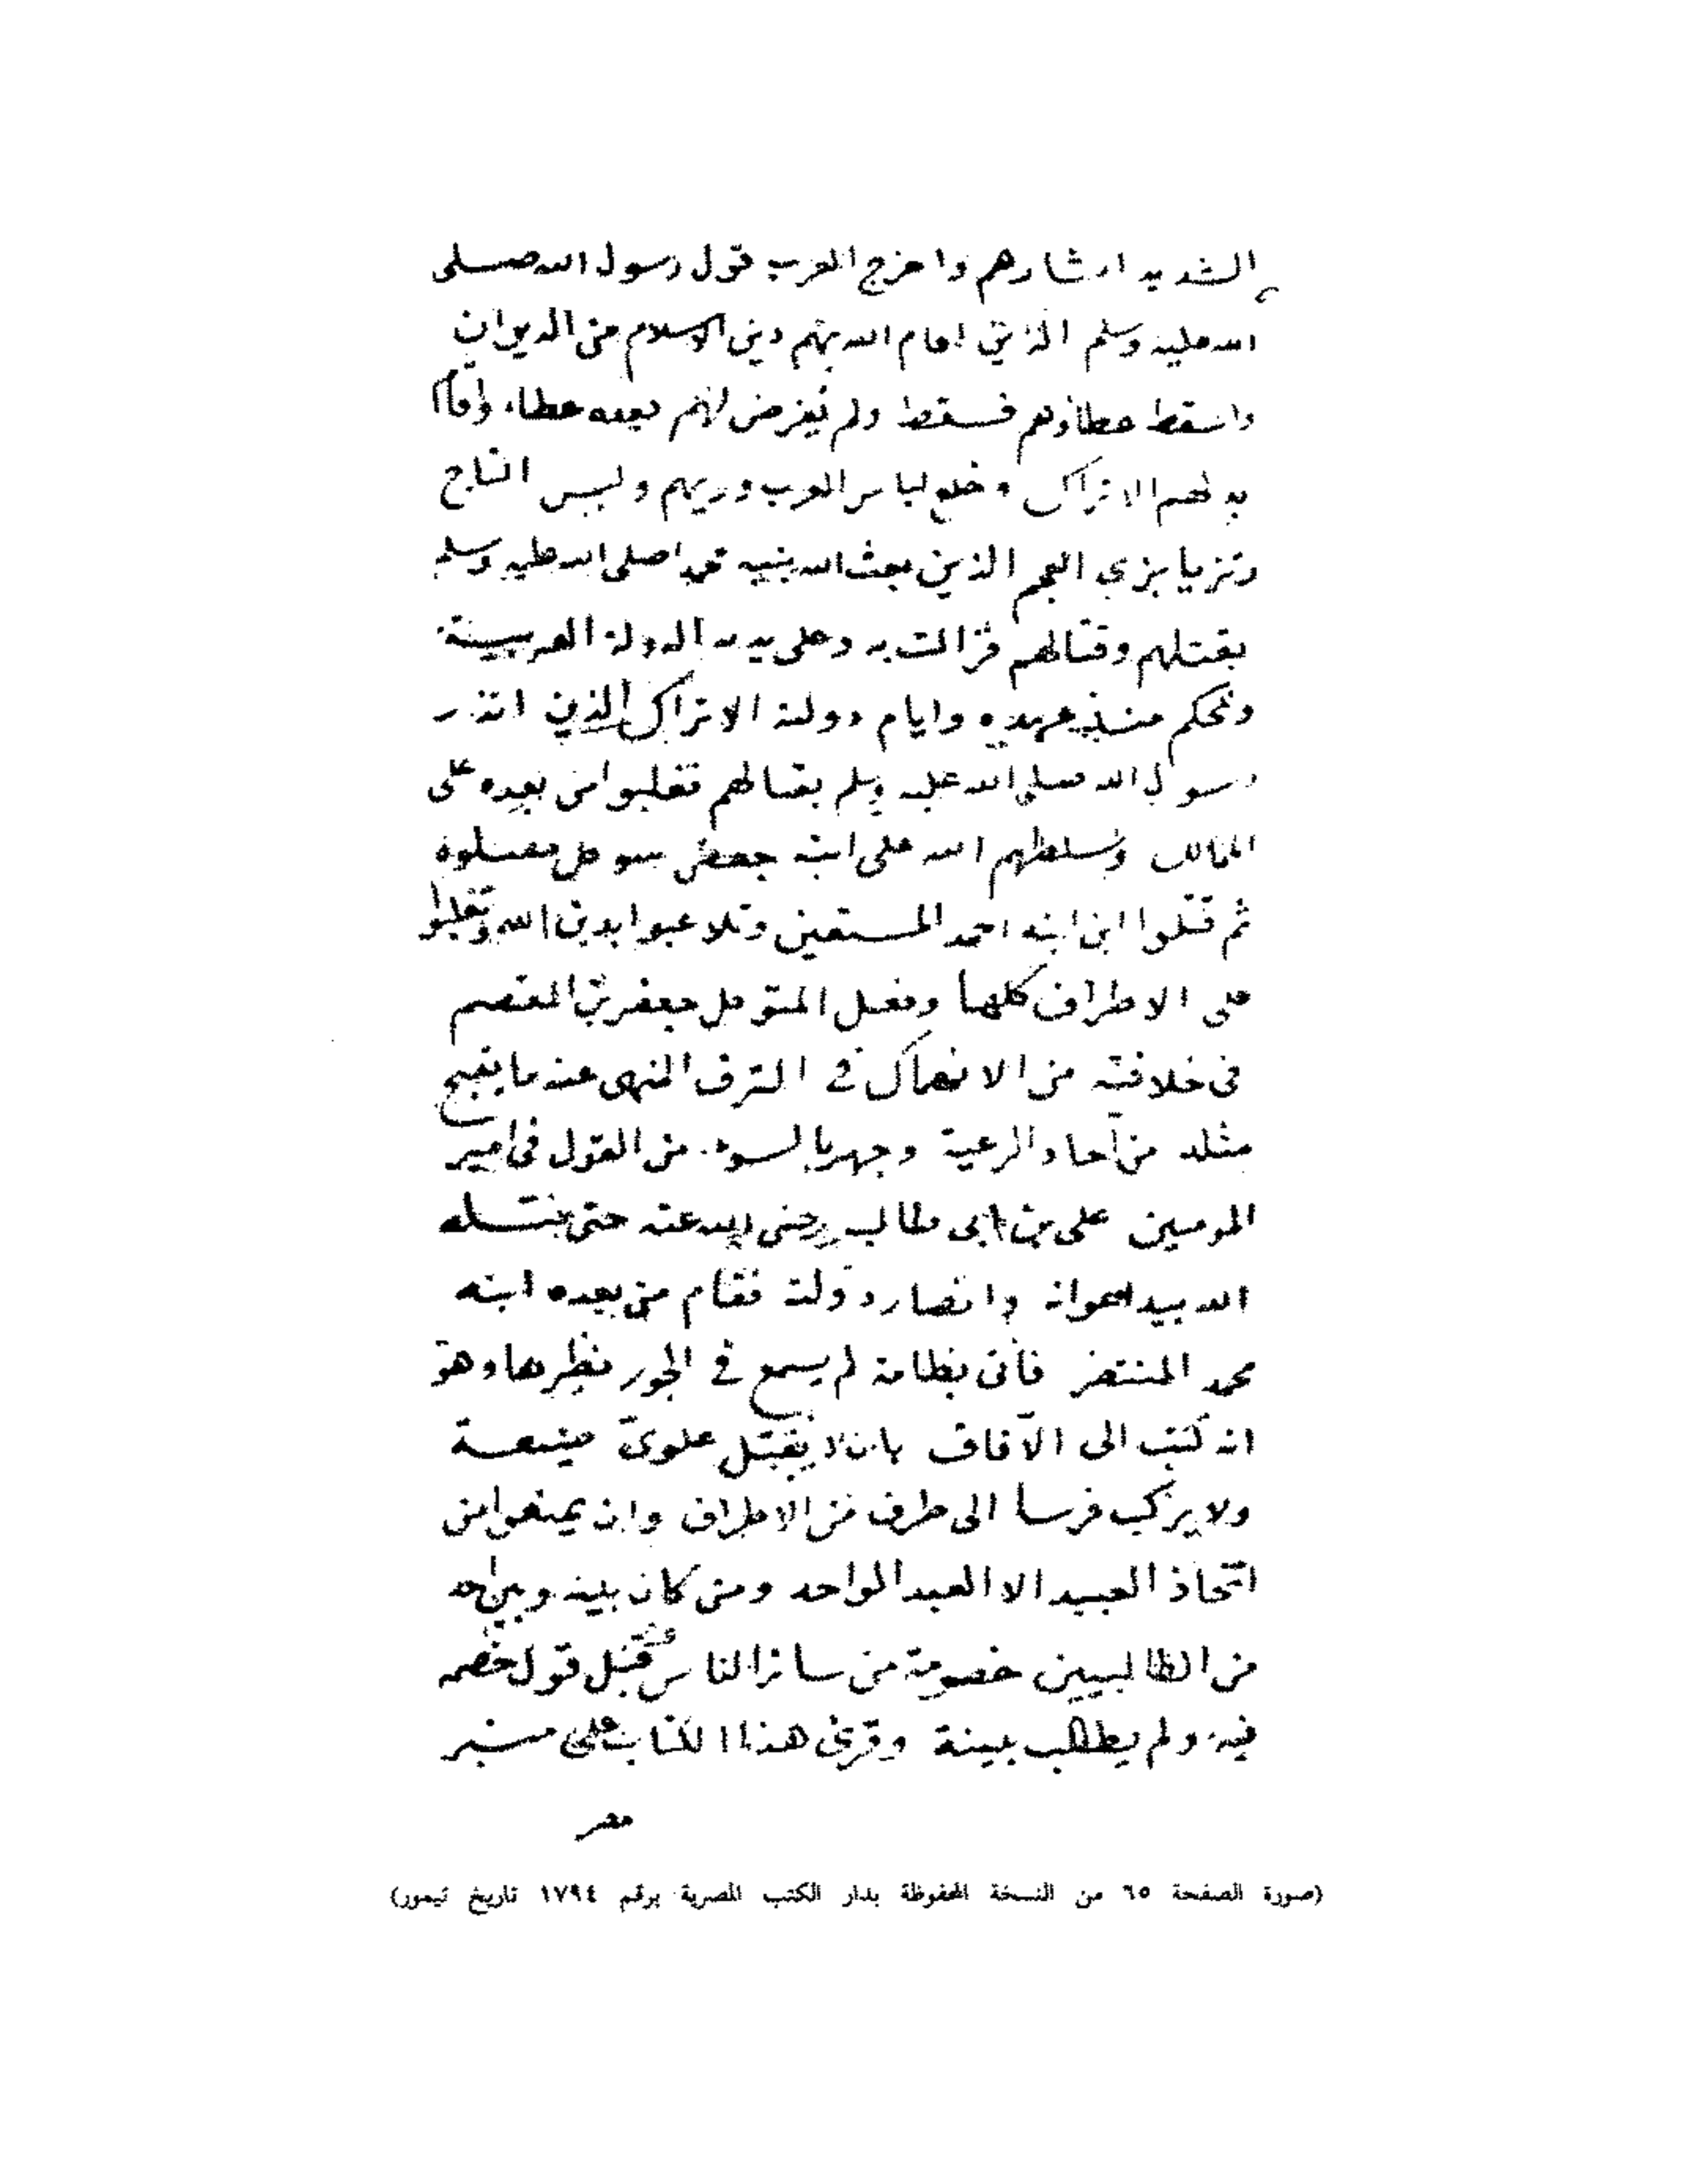 الشديد ابشارهم واخرج العرب قول رسول الله صلى
الله عليه وسلم الذين اقام الله بهم دين الاسلام من الديوان
واسقط عطاؤهم فسقط ولم يفرض لهم بعده عطاء واقام
بدلهم الاتراك وخلع لباس العرب وزيهم ولبس التاج
وتزيا بزي العجم الذين بعث الله نبيه صلى الله عليه وسلم
بقتلهم وقتالهم فزالت به وعلى يديه الدولة العربية
وتحكم منذ عهده وايام دولته الاتراك الذين انذر
رسول الله صلى الله عليه وسلم بقتالهم فغلبوا من بعده على
الممالك وسلطهم الله على ابنه جعفر فقتلوه
ثم قتلوا ابن ابنه احمد المستعين وتلاعبوا بدين الله وتغلبوا
على الاطراف كلها وفعل المتوكل جعفر بن المعتصم
في خلافته من الانهماك في الترف المنهى عنه ما يقبح
مثله من آحاد الرعية وجهر بالسوء من القول في امير
المومنين على بن ابى طالب رضى الله عنه حتى قتله
الله بيد اعوانه وانصار دولته فقام من بعده ابنه
محمد المنتصر فأتى بطامة لم يسمع في الجور بنظيرها وهو
انه كتب الى الآفاق بان لا يقبل علوى ضيعة
ولا يركب فرسا الى طرف من الاطراف وان يمنعوا من
اتخاذ العبيد الا العبد الواحد ومن كان بينه وبين احد
من الطالبيين خصومة من سائر الناس قبل قول خصمه
فيه ولم يطالب ببينة وقرئ هذا الكتاب على منبر
مصر
(صورة الصفحة ٦٥ من النسخة المحفوظة بدار الكتب المصرية برقم ١٧٩٤ تاريخ تيمور)